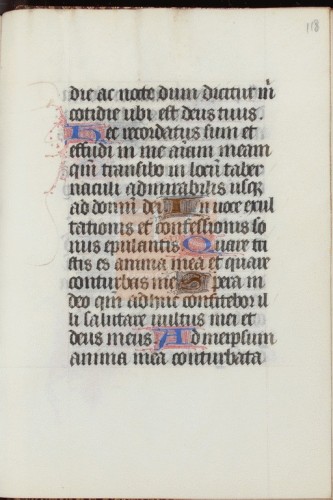 118
die ac nocte dum dicitur m̄
cotidie ubi est deus tuus.
Hec recordatus sum et
effudi in me aīam meam
qm̄ transibo in locū taber
naculi admirabilis usqʒ
ad domū dei In uoce exul
tationis et confessionis so
nus epulantis. Quare tri
stis es anima mea et quare
conturbas me Spera in
deo qm̄ adhuc confitebor il
li salutare uultus mei et
deus meus. Ad meipsum
anima mea conturbata